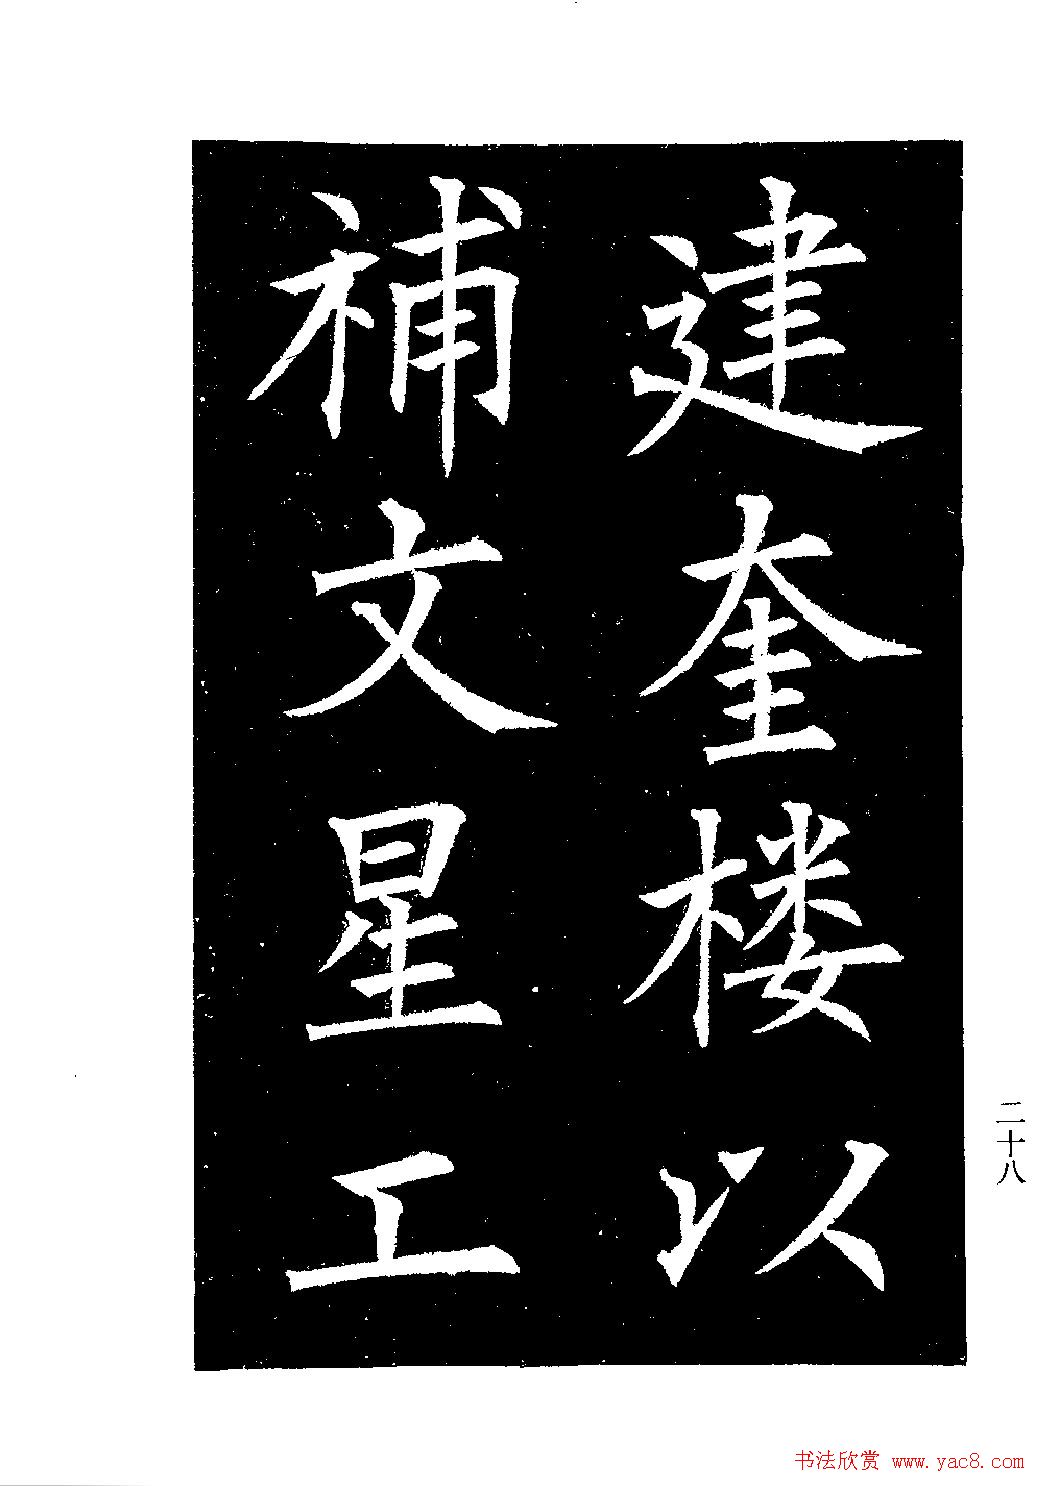 建奎楼以
補文星工
二十八
书法欣赏 www.yac8.com